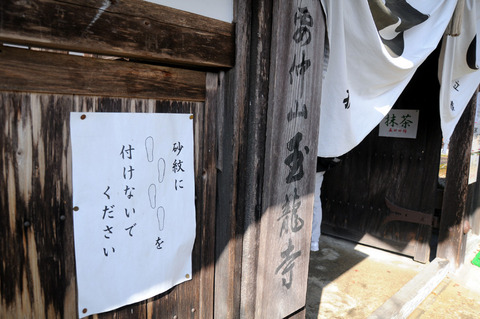 砂紋に
を
付けないで
ください
安仲山玉龍寺
抹茶